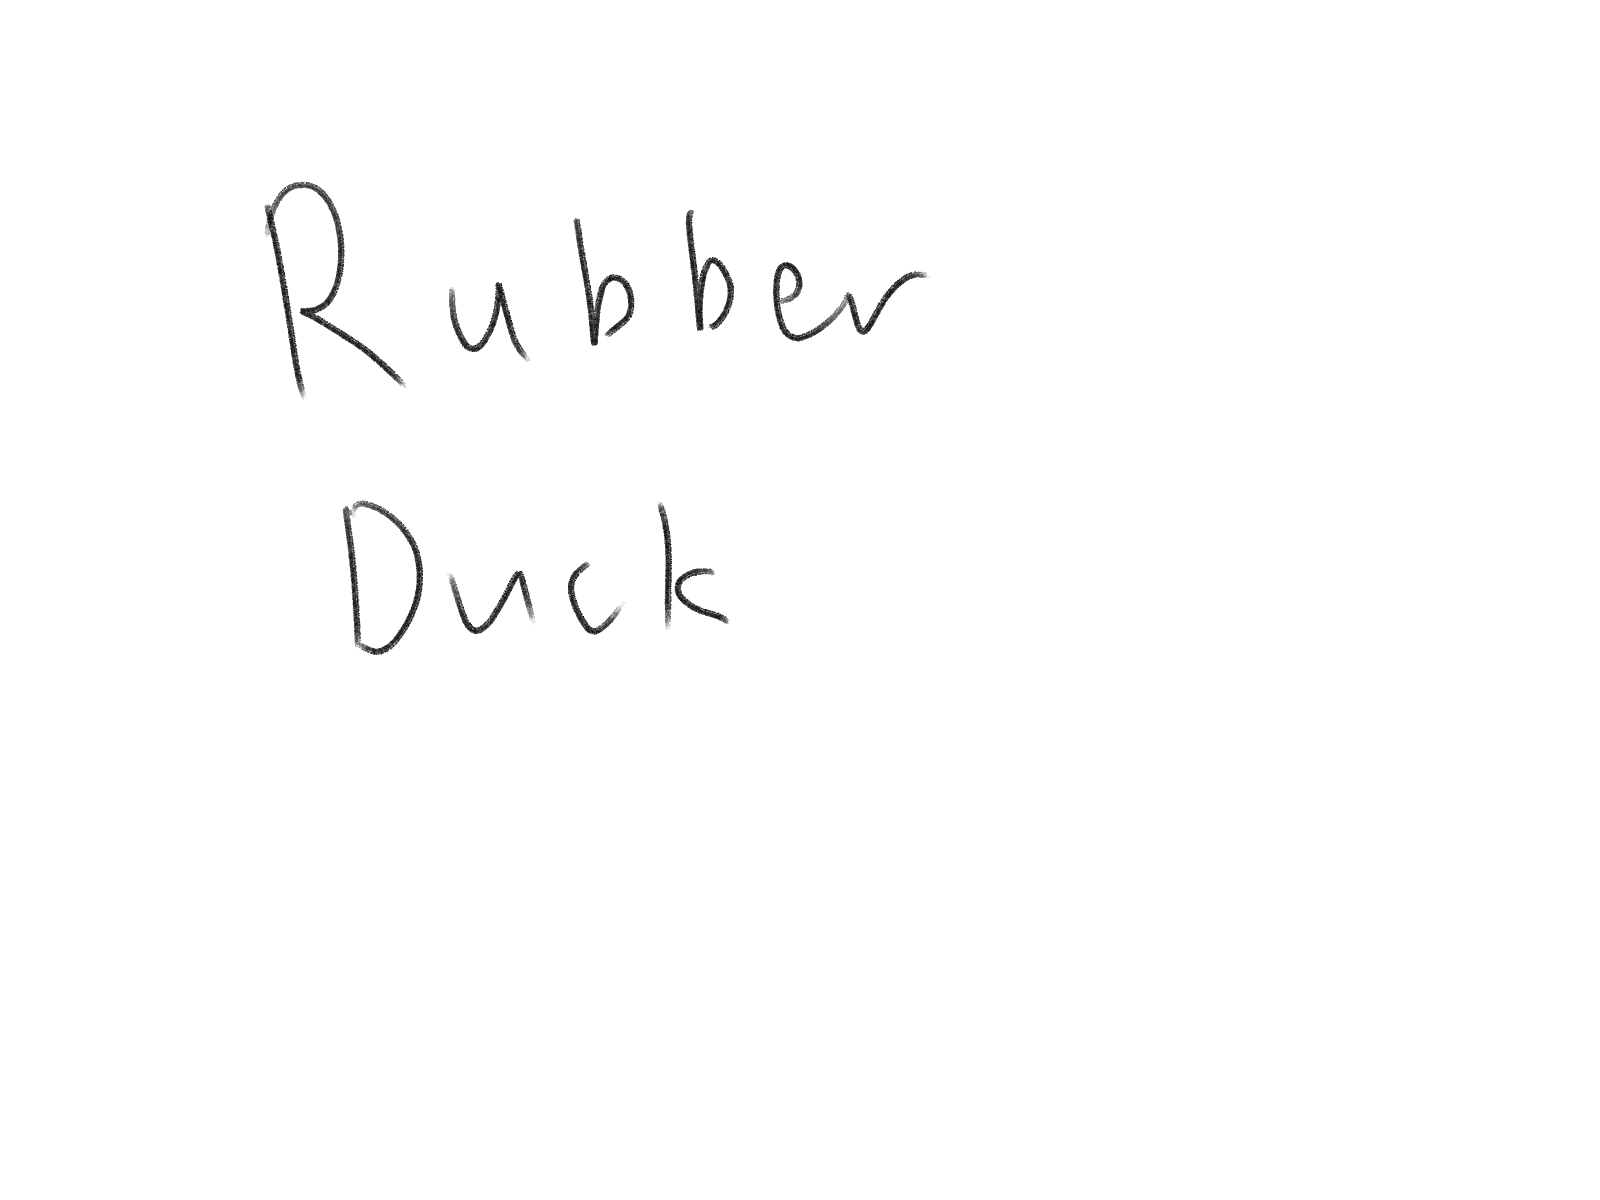 Rubber
Duck